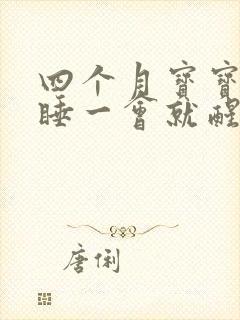 四个月宝宝
睡一会就醒
唐俐